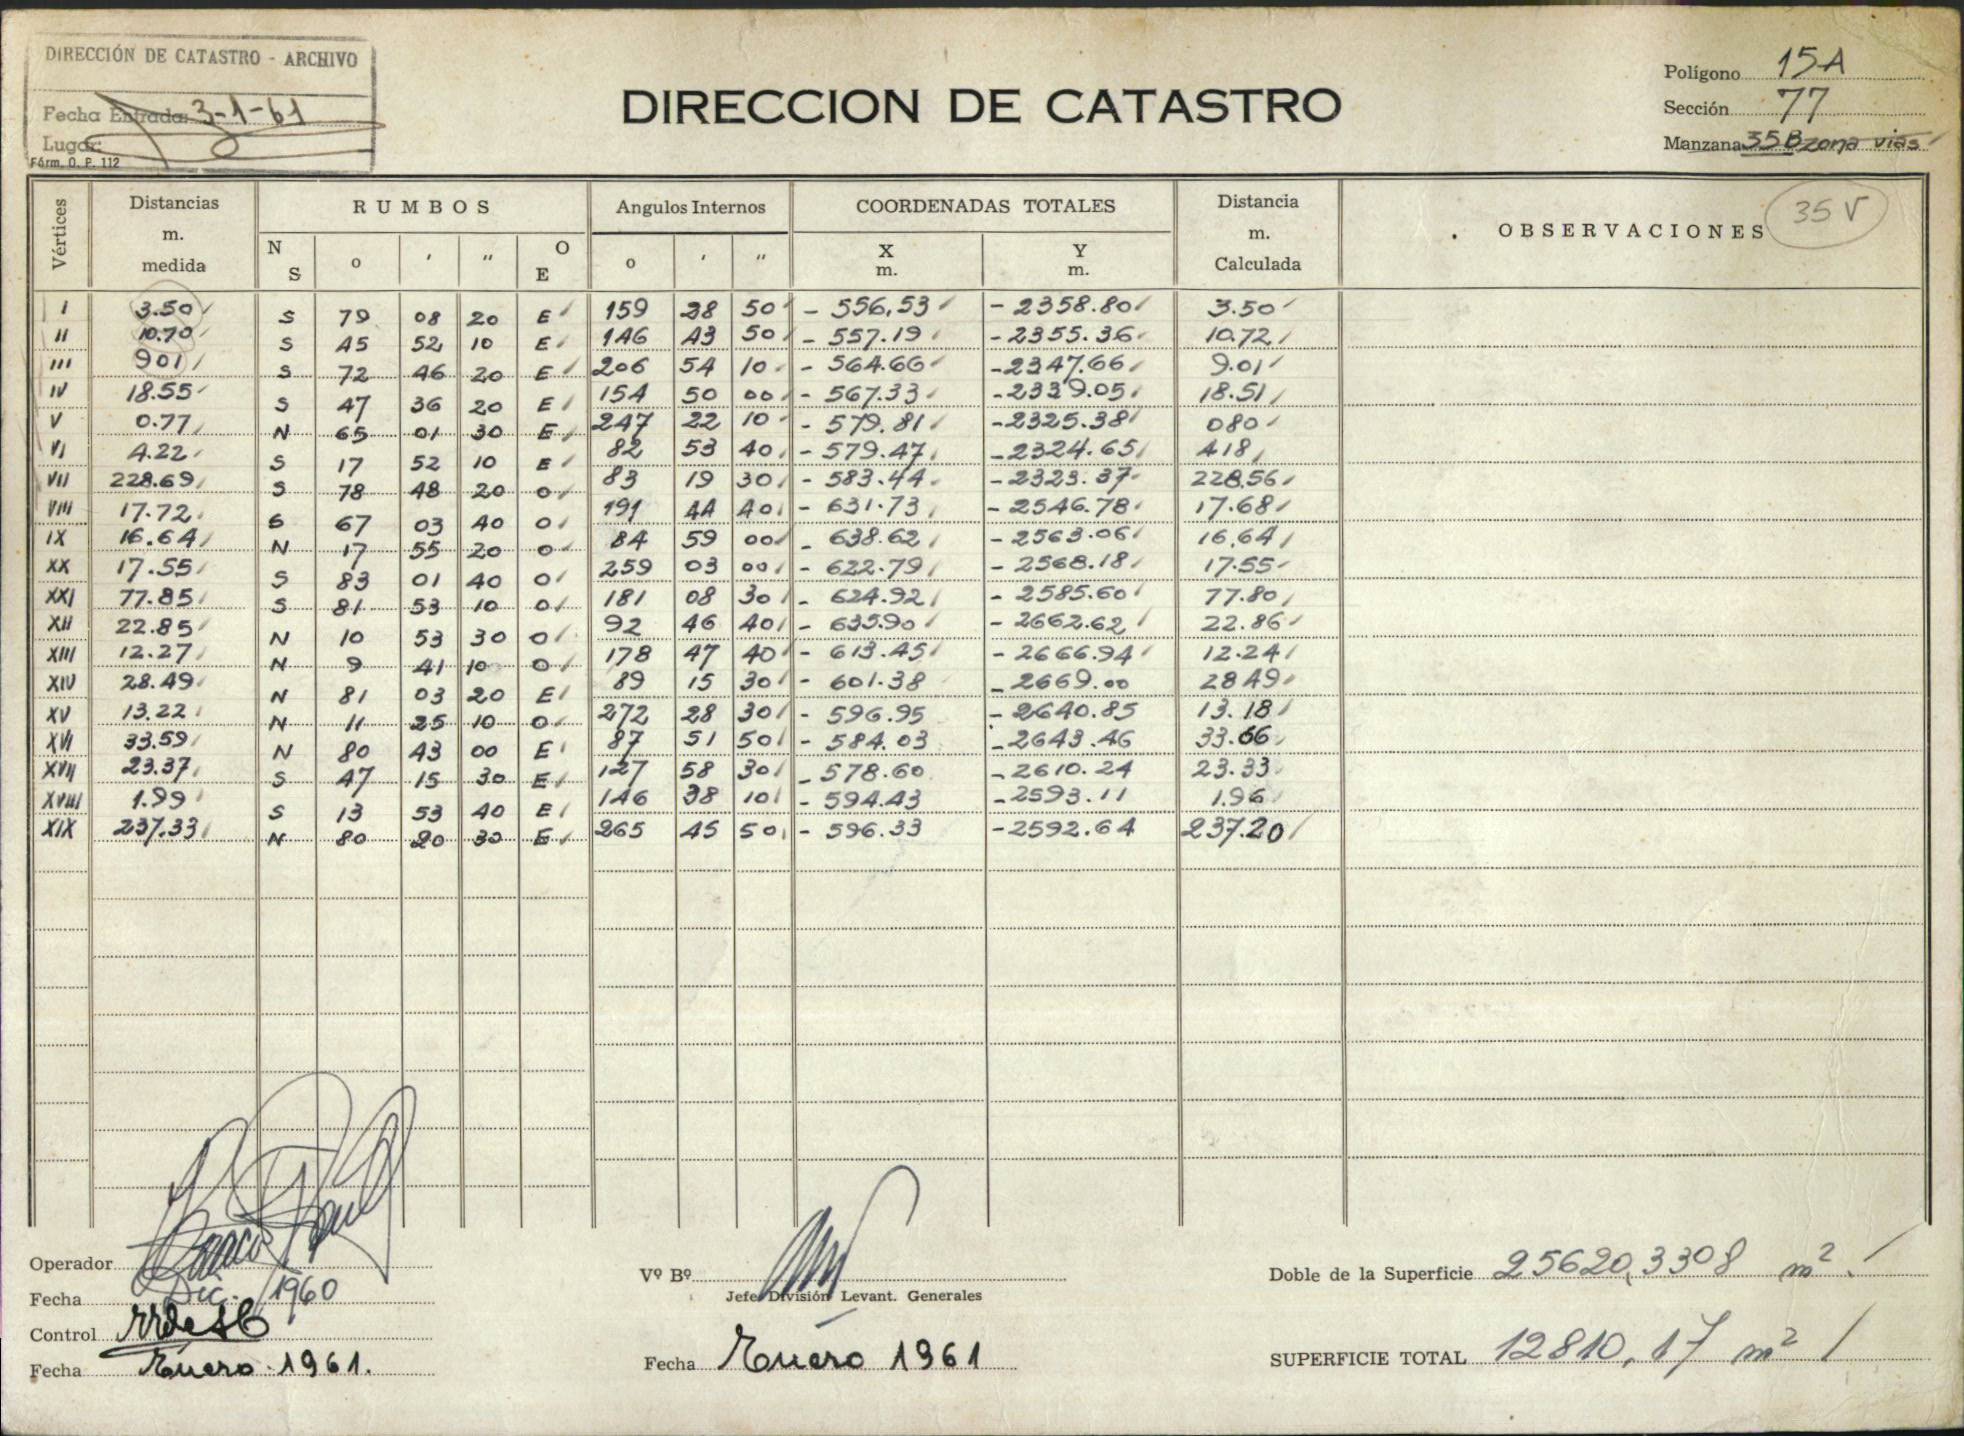 DIRECCIÓN DE CATASTRO - ARCHIVO
Fecha Entrada: 3-1-61
Lugar:
Fórm. O. P. 112
DIRECCION DE CATASTRO
Polígono 15A
Sección 77
Manzana 35B zona vias
35 V
Vértices Distancias m. medida RUMBOS Angulos Internos COORDENADAS TOTALES Distancia m. Calculada OBSERVACIONES
N S o ' " O E o ' " X m. Y m.
I 3.50 S 79 08 20 E 159 38 50 - 556,53 - 2358.80 3.50
II 10.70 S 45 52 10 E 146 43 50 - 557.19 - 2355.36 10.72
III 901 S 72 46 20 E 206 54 10 - 564.66 - 2347.66 9.01
IV 18.55 S 47 36 20 E 154 50 00 - 567.33 - 2339.05 18.51
V 0.77 N 65 01 30 E 247 22 10 - 579.81 - 2325.38 080
VI 4.22 S 17 52 10 E 82 53 40 - 579.47 - 2324.65 418
VII 228.69 S 78 48 20 O 83 19 30 - 583.44 - 2323.37 228.56
VIII 17.72 S 67 03 40 O 191 44 40 - 631.73 - 2546.78 17.68
IX 16.64 N 17 55 20 O 84 59 00 - 638.62 - 2563.06 16.64
XX 17.55 S 83 01 40 O 259 03 00 - 622.79 - 2568.18 17.55
XXI 77.85 S 81 53 10 O 181 08 30 - 624.92 - 2585.60 77.80
XII 22.85 N 10 53 30 O 92 46 40 - 635.90 - 2662.62 22.86
XIII 12.27 N 9 41 10 O 178 47 40 - 613.45 - 2666.94 12.24
XIV 28.49 N 81 03 20 E 89 15 30 - 601.38 - 2669.00 28 49
XV 13.22 N 11 25 10 O 272 28 30 - 596.95 - 2640.85 13.18
XVI 33.59 N 80 43 00 E 87 51 50 - 584.03 - 2643.46 33.66
XVII 23.37 S 47 15 30 E 127 58 30 - 578.60 - 2610.24 23.33
XVIII 1.99 S 13 53 40 E 146 38 10 - 594.43 - 2593.11 1.96
XIX 237.33 N 80 20 30 E 265 45 50 - 596.33 - 2592.64 237.20
Operador
Fecha Dic. /1960
Control
Fecha Enero - 1961.
Vº Bº
Jefe División Levant. Generales
Fecha Enero 1961
Doble de la Superficie 25620,3308 m².
SUPERFICIE TOTAL 12810,17 m²